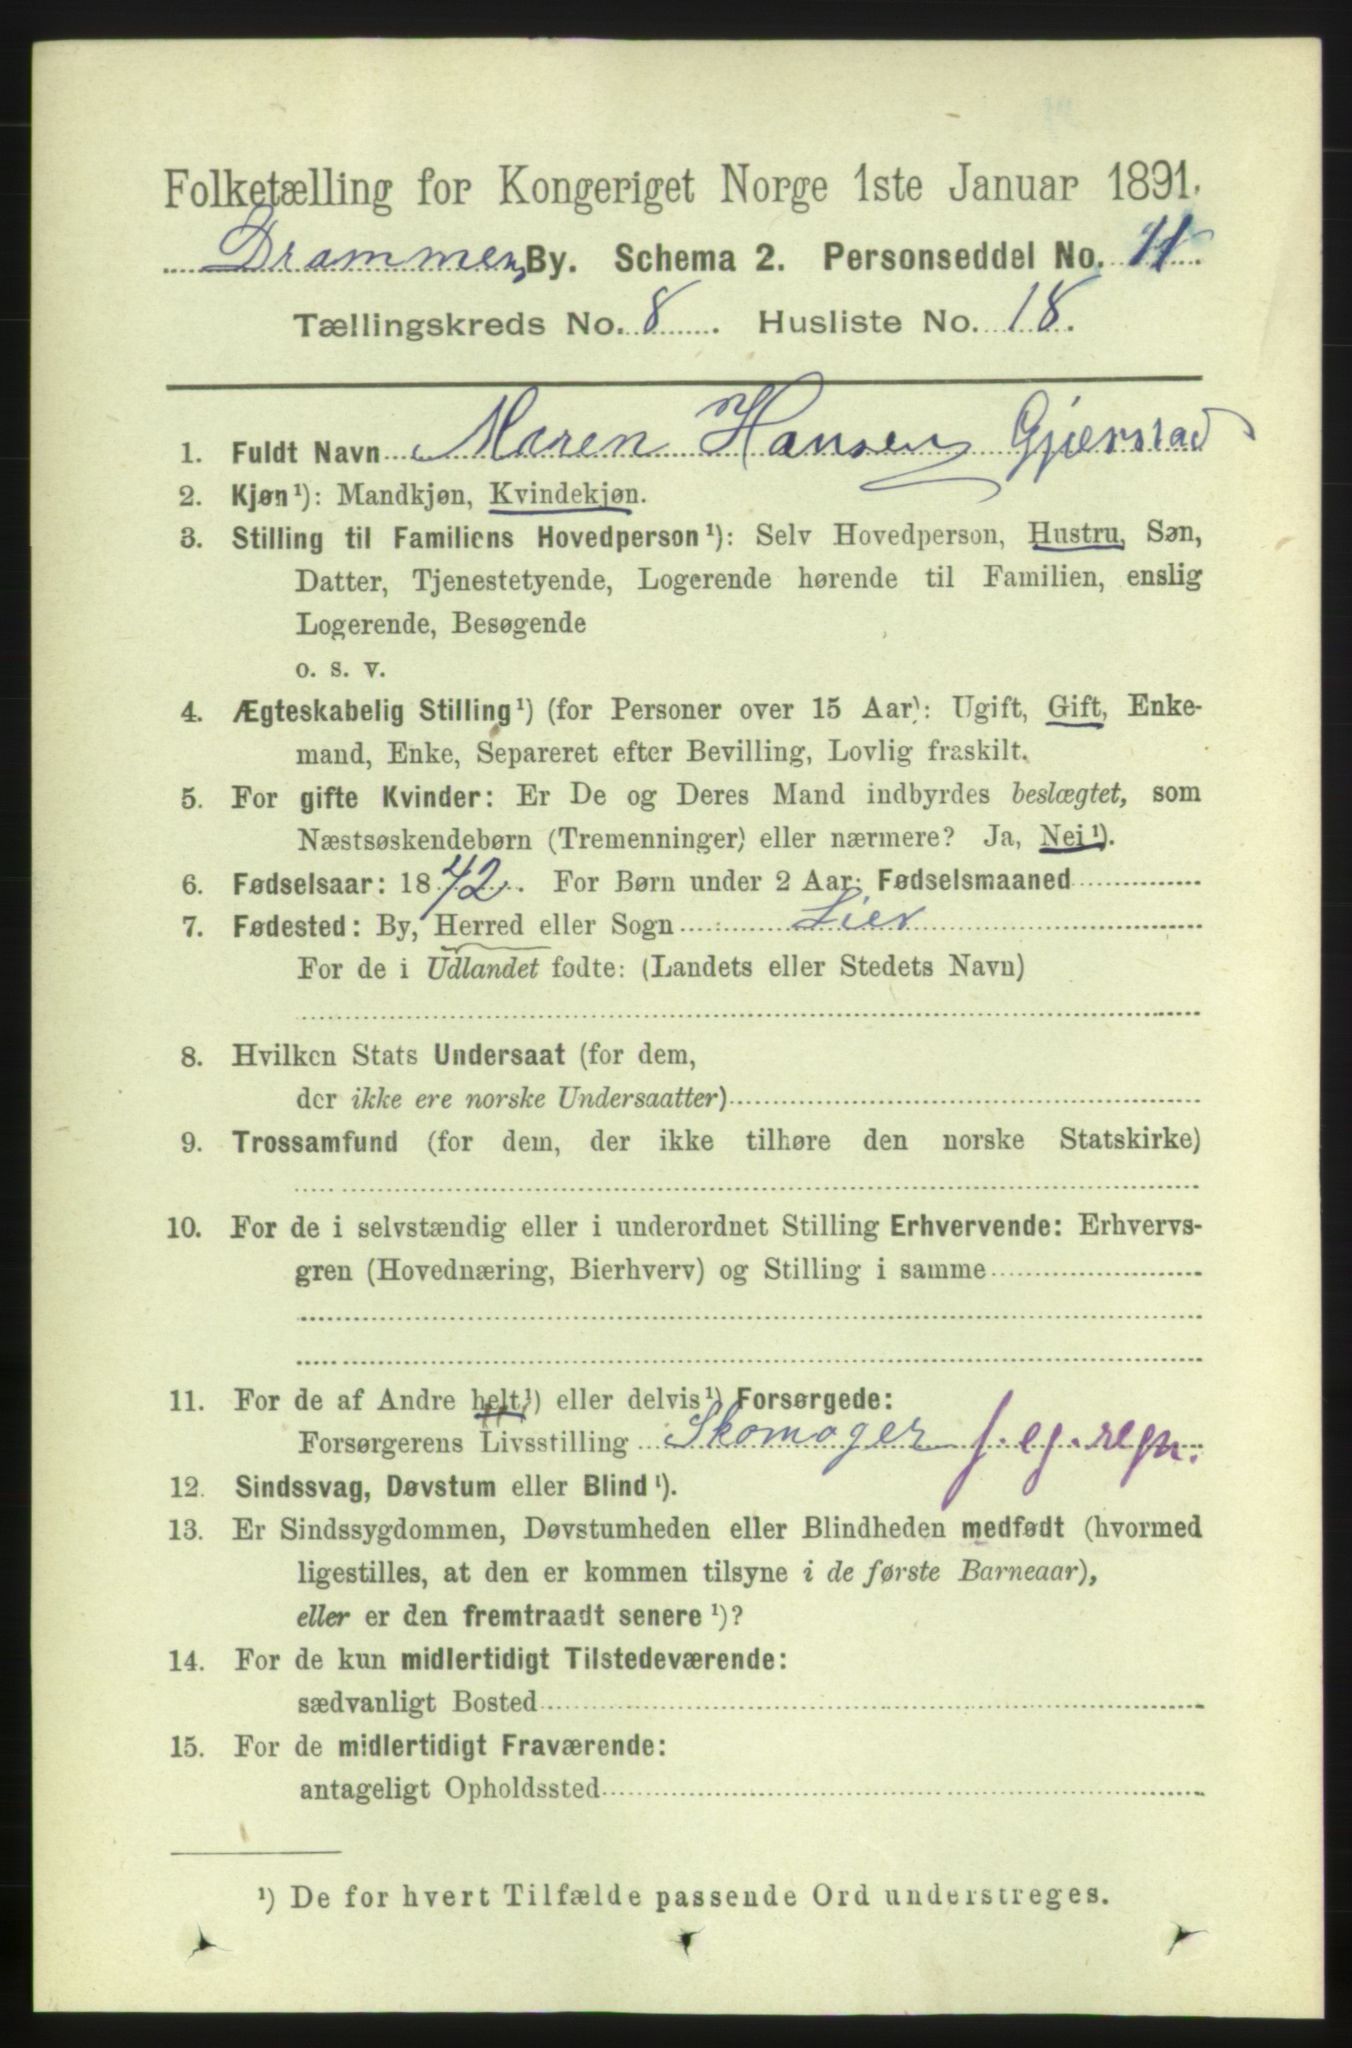 Folketælling for Kongeriget Norge 1ste Januar 1891.
Drammens By. Schema 2. Personseddel No. 11
Tællingskreds No. 8. Husliste No. 18.
1. Fuldt Navn Maren Hansen Gjerstad
2. Kjøn¹): Mandkjøn, Kvindekjøn.
3. Stilling til Familiens Hovedperson¹): Selv Hovedperson, Hustru, Søn,
Datter, Tjenestetyende, Logerende hørende til Familien, enslig
Logerende, Besøgende
o. s. v.
4. Ægteskabelig Stilling¹) (for Personer over 15 Aar): Ugift, Gift, Enke-
mand, Enke, Separeret efter Bevilling, Lovlig fraskilt.
5. For gifte Kvinder: Er De og Deres Mand indbyrdes beslægtet, som
Næstsøskendebørn (Tremenninger) eller nærmere? Ja, Nei¹).
6. Fødselsaar: 1842. For Børn under 2 Aar: Fødselsmaaned
7. Fødested: By, Herred eller Sogn Lier
For de i Udlandet fødte: (Landets eller Stedets Navn)
8. Hvilken Stats Undersaat (for dem,
der ikke ere norske Undersaatter)
9. Trossamfund (for dem, der ikke tilhøre den norske Statskirke)
10. For de i selvstændig eller i underordnet Stilling Erhvervende: Erhvervs-
gren (Hovednæring, Bierhverv) og Stilling i samme
11. For de af Andre helt¹) eller delvis¹) Forsørgede:
Forsørgerens Livsstilling Skomager f. eg. regn.
12. Sindssvag, Døvstum eller Blind¹).
13. Er Sindssygdommen, Døvstumheden eller Blindheden medfødt (hvormed
ligestilles, at den er kommen tilsyne i de første Barneaar),
eller er den fremtraadt senere¹)?
14. For de kun midlertidigt Tilstedeværende:
sædvanligt Bosted
15. For de midlertidigt Fraværende:
antageligt Opholdssted
¹) De for hvert Tilfælde passende Ord understreges.